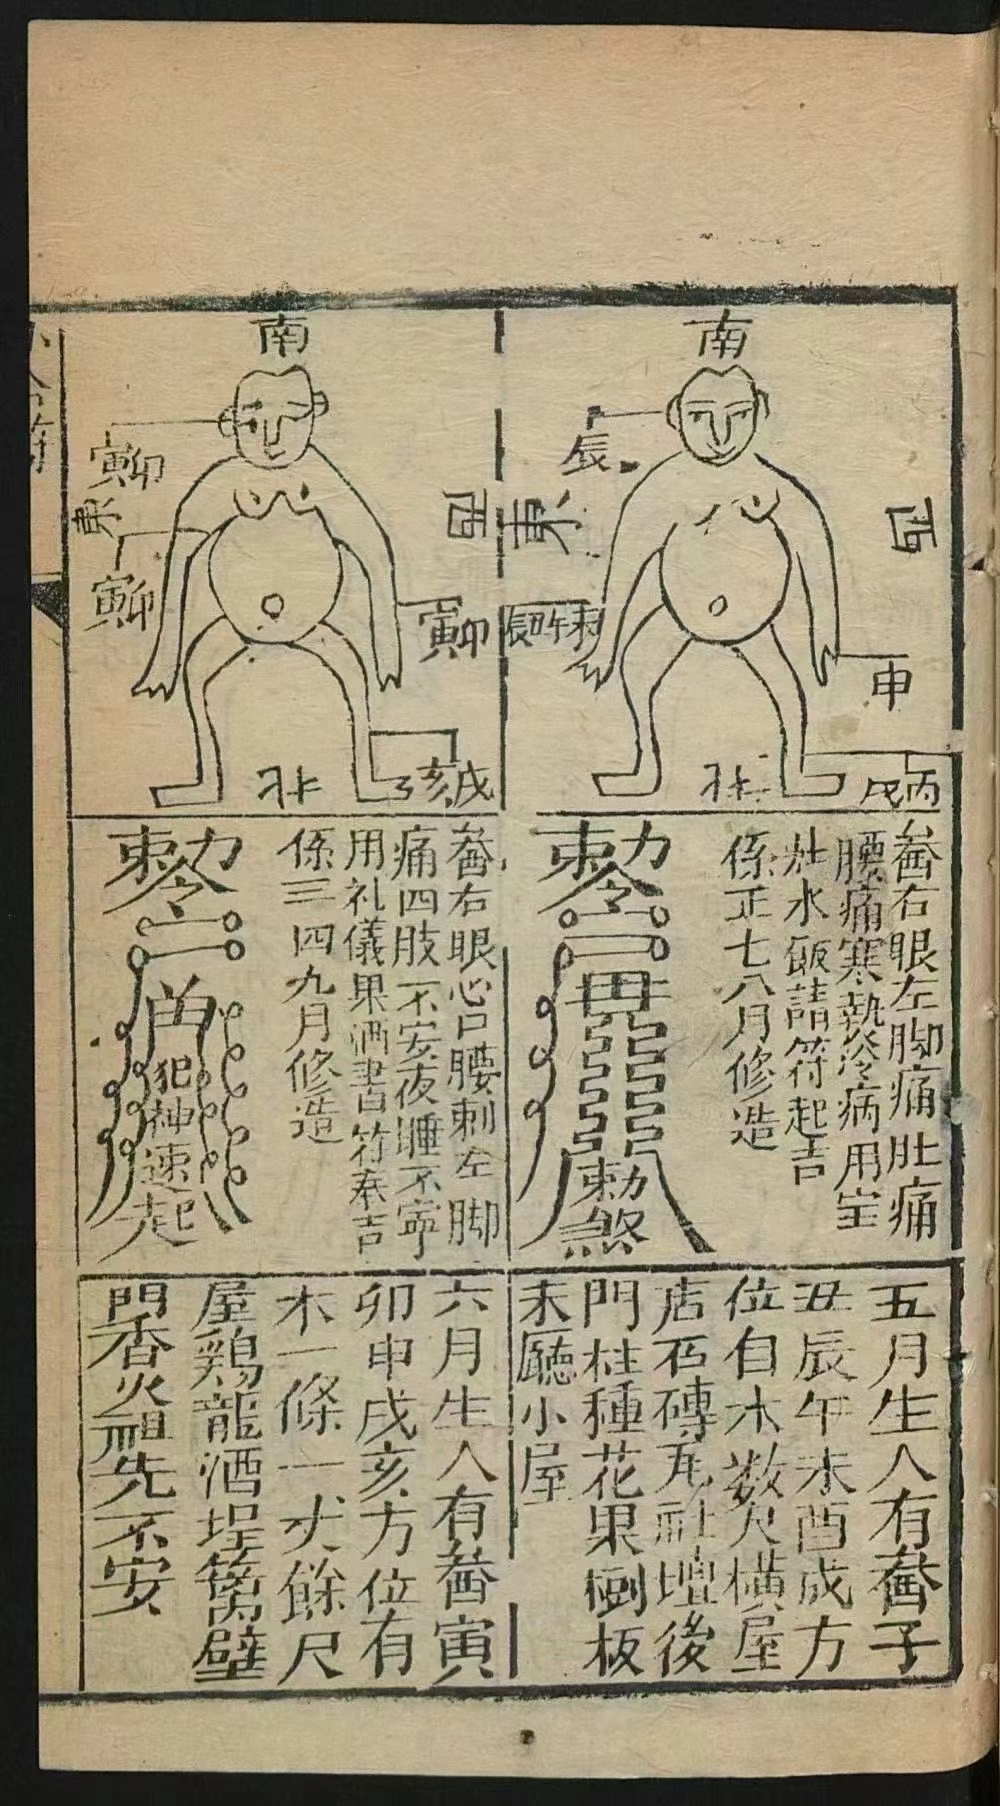 南
辰
東
西
辰酉午未
申
北
丙戌
畨右眼左脚痛肚痛
腰痛寒執冷病用宝
灶水飯請符起吉
係正七八月修造
勅令
勅煞
五月生人有畨子
丑辰午未酉成方
位自木数尺橫屋
店石磚瓦社壇後
門柱種花果樹板
未廳小屋
南
寅卯
東
寅卯
西
寅卯
北
亥戌
畨右眼心口腰刺左脚
痛四肢不安夜睡不寧
用礼儀果酒書符奉吉
係三四九月修造
勅令
犯神速起
六月生人有畨寅
卯申戌亥方位有
木一條一丈餘尺
屋鶏龍酒埕篱壁
門香火祖先不安